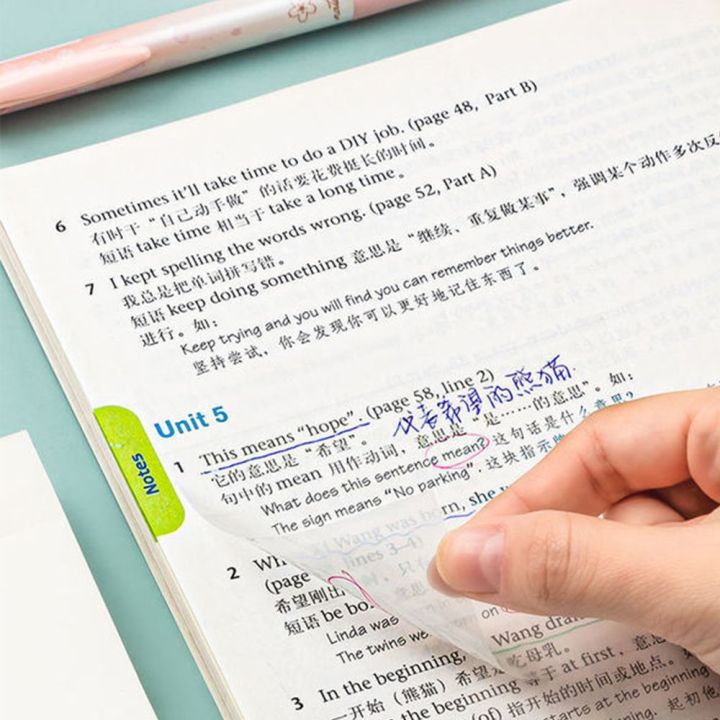 6 Sometimes it'll take time to do a DIY job. (page 48, Part B)
有时干“自己动手做”的活要花费挺长的时间。
短语 take time 相当于 take a long time。
7 I kept spelling the words wrong. (page 52, Part A)
我总是把单词拼写错。
短语 keep doing something 意思是“继续、重复做某事”，强调某个动作多次反
进行。如：
Keep trying and you will find you can remember things better.
坚持尝试，你会发现你可以更好地记住东西了。
Unit 5
Notes
1 This means “hope”. (page 58, line 2) 代表希望的熊猫
它的意思是“希望”。
句中的 mean 用作动词，意思是“是……的意思”。如：
What does this sentence mean? 这句话是什么意思？
The sign means “No parking”. 这块指示牌
2 Wang was born, she
(page lines 3–4)
希望刚出
短语 be
Linda was
The twins were on
Wang
吃母乳。
3 In the beginning,
一开始（熊猫）希望
the beginning 等于 at first，意思
(of) 指开始的时间或地点。
starts at the beginning
起初他